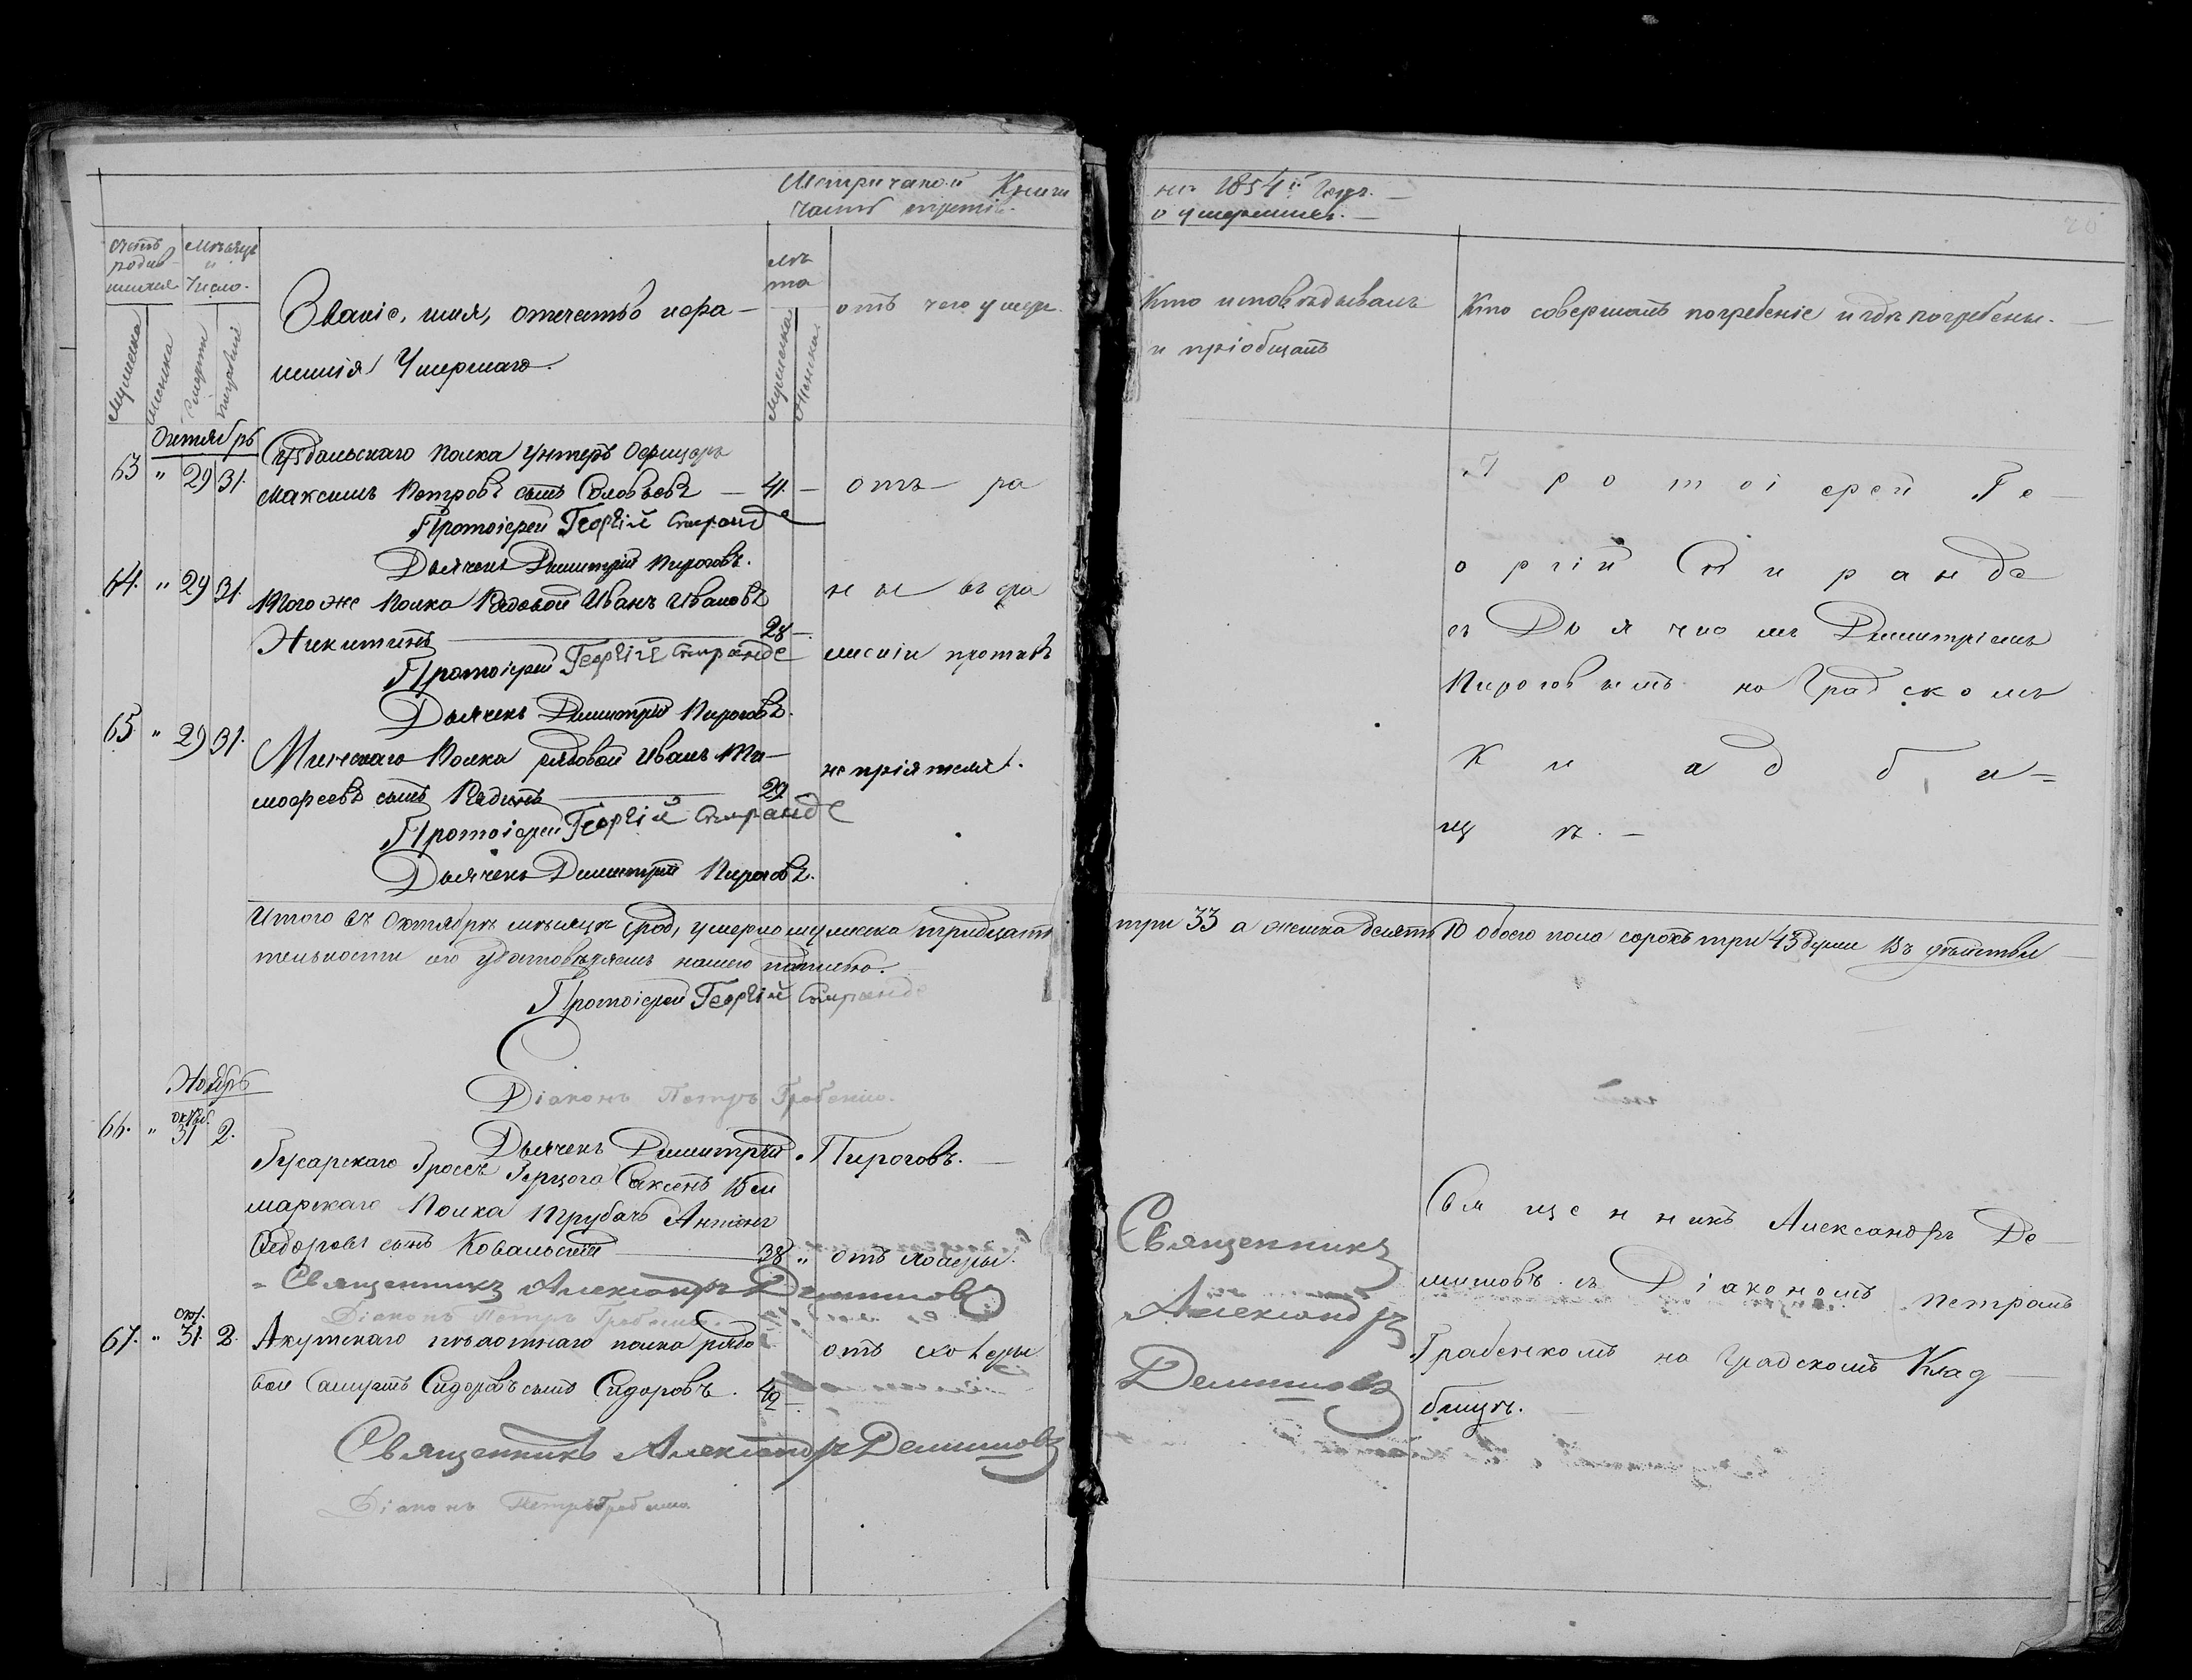 Метрической Книги
часть третія.
на 1854й годъ.
о умершихъ.
20
счетъ родив-
шихся
Мужеска
Женска
Мѣсяцъ
и
Число.
Смерти
погребенія
Званіе, имя, отчество и фа-
милія Умершаго.
лѣ
та
Мужеска
Женска
отъ чего умеръ.
Кто исповѣдывалъ
и пріобщалъ
Кто совершалъ погребеніе и гдѣ погребены.
Октябрь
63 " 29 31.
Суздальскаго Полка Унтеръ Офицеръ
Максимъ Петровъ сынъ Соловьевъ — 41. —
Протоіерей Георгій Спиранде
Дьячекъ Димитрій Пироговъ.
64. " 29 31.
Того же Полка Рядовой Иванъ Ивановъ
Никитинъ 28 —
Протоіерей Георгій Спиранде
Дьячекъ Димитрій Пироговъ.
65. " 29 31.
Минскаго Полка рядовой Иванъ Ти-
мофеевъ сынъ Рядинъ 29
Протоіерей Георгій Спиранде
Дьячекъ Димитрій Пироговъ.
отъ ра
ны въ сра
женіи противъ
непріятеля.
Протоіерей Ге-
оргій Спиранде
съ Дьячкомъ Димитріемъ
Пироговымъ на Градскомъ
Кладби-
щѣ. —
Итого въ Октябрѣ мѣсяцѣ умерло мужеска тридцать три 33 а женска десять 10 обоего пола сорокъ три 43 души Въ дѣйстви
тельности сего удостовѣряемъ нашею подписью.
Протоіерей Георгій Спиранде
Діаконъ Петръ Гребенко.
Дьячекъ Димитрій Пироговъ.
Ноябрь
66. " октяб. 31 2.
Гусарскаго Гроссъ Герцога Саксенъ Вей
марскаго Полка Трубачъ Антонъ
Федоровъ сынъ Ковальскій 38 " отъ холеры.
Священникъ Александръ Демяновъ
Діаконъ Петръ Гребенко.
67. " окт. 31. 2.
Якутскаго пѣхотнаго полка рядо
вой Сидоровъ сынъ Сидоровъ. 42 —
отъ холеры
Священникъ Александръ Демяновъ
Діаконъ Петръ Гребенко
Священникъ
Александръ
Демяновъ
Священникъ Александръ Де-
мяновъ съ Діакономъ Петромъ
Гребенкомъ на Градскомъ Клад-
бищѣ.